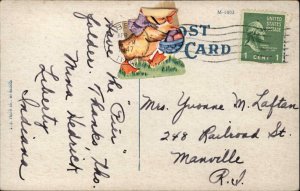 M-1003
POST
CARD
1 CENT 1
Have the "Pier"
folder. Thanks tho.
Mina Hedrick
Liberty
Indiana
Mrs. Yvonne M. Laftan
248 Railroad St.
Manville
R.I.